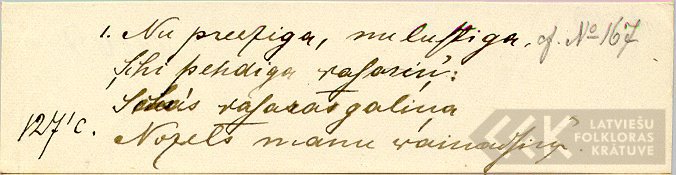 1. Nu preeziga, nu lustiga, cf. № 167
Schi pehdiga wasariņ':
Schās wasaras galiņa
127'c. Nozels manu wainadziņ'.
LATVIEŠU
FOLKLORAS
KRĀTUVE